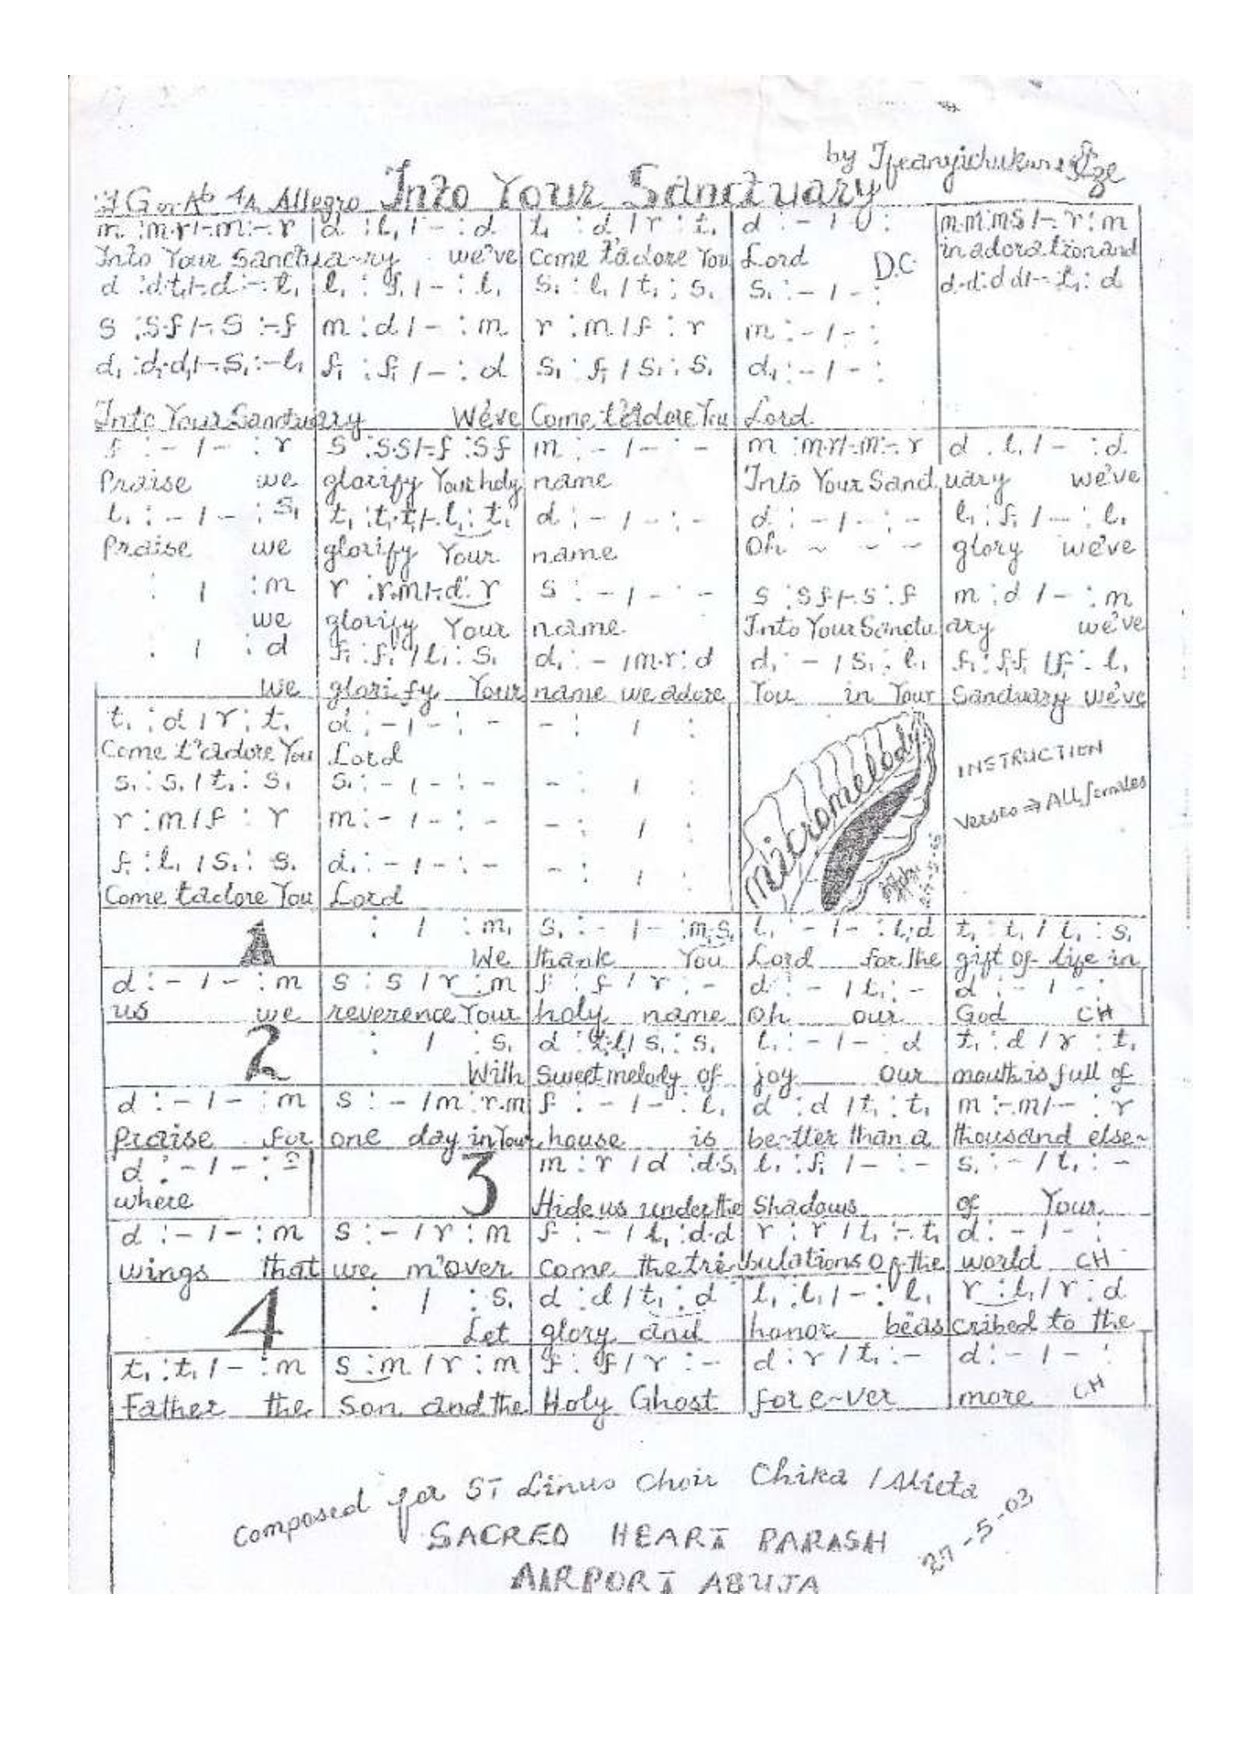 by Ifeanyichukwu Eze
Into Your Sanctuary
G or Ab 4/4 Allegro
m :m.r/-.m:-.r | d :l₁/- :d | t₁ :d/r :t₁ | d :-/0 : | m.m:m.s/-.r:m
Into Your Sanctua-ry we've Come t'adore You Lord D.C in adoration and
d :d.t₁/-.d:-.t₁ | l₁ :f₁/- :l₁ | s₁ :l₁/t₁ :s₁ | s₁ :-/- : | d.d:d.d/-.t₁:d
s :s.f/-.s:-.f | m :d/- :m | r :m/f :r | m :-/- :
d₁ :d₁.d₁/-.s₁:-.l₁ | f₁ :f₁/- :d | s₁ :f₁/s₁ :s₁ | d₁ :-/- :
Into Your Sanctuary We've Come t'adore You Lord
f :-/- :r | s :s.s/-.f:s.f | m :-/- :- | m :m.r/-.m:-.r | d :l₁/- :d
Praise we glorify Your holy name Into Your Sanctuary we've
l₁ :-/- :s₁ | t₁ :t₁.t₁/-.l₁:t₁ | d :-/- :- | d :-/- :- | l₁ :f₁/- :l₁
Praise we glorify Your name Oh ~ ~ ~ glory we've
: / :m | r :r.m/-.d:r | s :-/- :- | s :s.f/-.s:f | m :d/- :m
we glorify Your name Into Your Sanctuary we've
: / :d | f₁ :f₁/l₁ :s₁ | d₁ :-/m.r:d | d₁ :-/s₁ :l₁ | f₁ :f₁.f₁/f₁ :l₁
we glorify Your name we adore You in Your Sanctuary we've
t₁ :d/r :t₁ | d :-/- :- | - : / :
Come t'adore You Lord
s₁ :s₁/t₁ :s₁ | s₁ :-/- :- | - : / :
r :m/f :r | m :-/- :- | - : / :
f₁ :l₁/s₁ :s₁ | d₁ :-/- :- | - : / :
Come t'adore You Lord
micromelody
INSTRUCTION
Verses ⇒ All females
1 : / :m₁ | s₁ :-/- :m₁.s₁ | l₁ :-/- :l₁.d | t₁ :t₁/t₁ :s₁
We thank You Lord for the gift of life in
d :-/- :m | s :s/r :m | f :f/r :- | d :-/t₁ :- | d :-/- :
us we reverence Your holy name Oh our God CH
2 : / :s₁ | d :t₁.l₁/s₁ :s₁ | l₁ :-/- :d | t₁ :d/r :t₁
With Sweet melody of joy our mouth is full of
d :-/- :m | s :-/m :r.m | f :-/- :l₁ | d :d/t₁ :t₁ | m :-.m/- :r
Praise for one day in Your house is be-tter than a thousand else-
d :-/- : 3 m :r/d :d.s₁ | l₁ :f₁/- :- | s₁ :-/t₁ :-
where Hide us under the Shadows of Your
d :-/- :m | s :-/r :m | f :-/l₁ :d.d | r :r/t₁ :-.t₁ | d :-/- :
wings that we m'over Come the tribulations of the world CH
4 : / :s₁ | d :d/t₁ :d | l₁ :l₁/- :l₁ | r :l₁/r :d
Let glory and honor be as cribed to the
t₁ :t₁/- :m | s :m/r :m | f :f/r :- | d :r/t₁ :- | d :-/- :
Father the Son and the Holy Ghost for e-ver more CH
Composed for ST Linus Choir Chika / Alieta
27-5-03
SACRED HEART PARASH
AIRPORT ABUJA